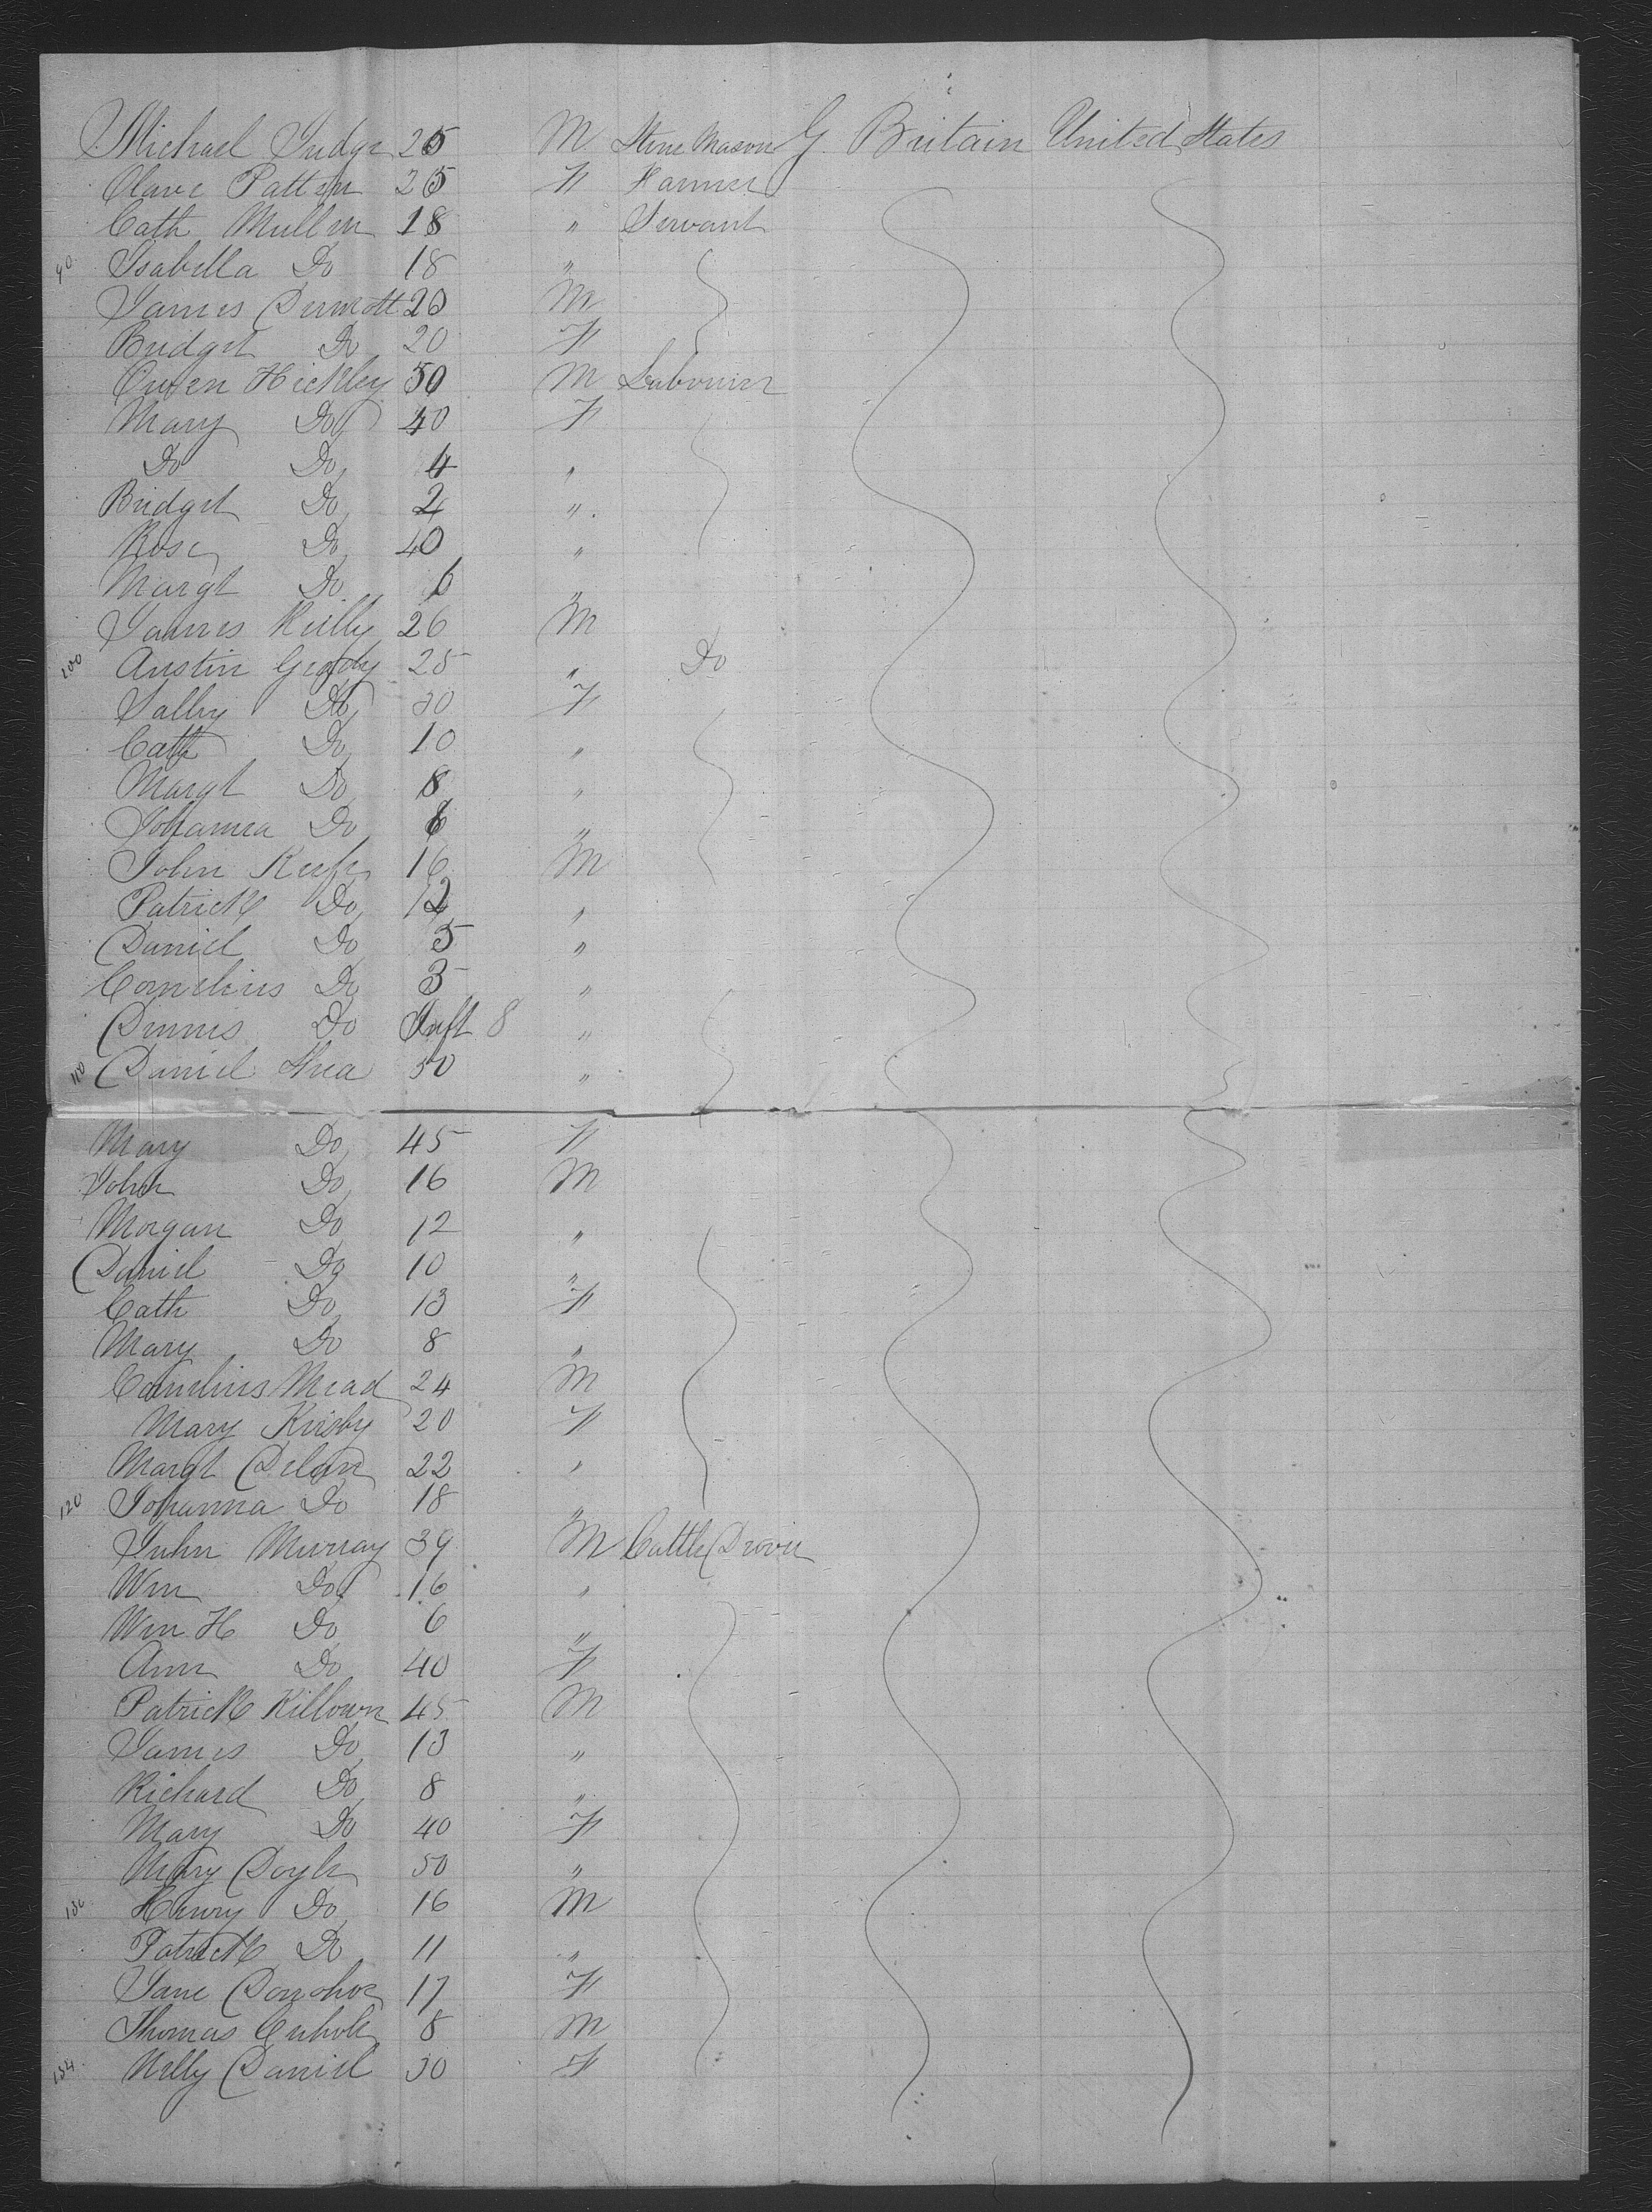 Michael Judge 25 M Stone Mason G. Britain United States
Clare Patten 25 F Farmer
Cath Mullen 18 " Servant
90 Isabella Do 18 "
James Dermott 20 M
Bridget Do 20 F
Owen Hickley 50 M Labourer
Mary Do 40 F
Do Do 4 "
Bridget Do 2 "
Rose Do 40 "
Margt Do 6 "
James Reilly 26 M
100 Austin Grady 25 " Do
Sally Do 30 F
Cath Do 10 "
Margt Do 8 "
Johanna Do 6 "
John Keefe 16 M
Patrick Do 12 "
Daniel Do 5 "
Cornelius Do 3 "
Dennis Do Inft 8 "
110 Daniel Shea 50 "
Mary Do 45 F
John Do 16 M
Morgan Do 12 "
Daniel Do 10 "
Cath Do 13 F
Mary Do 8 "
Cornelius Mead 24 M
Mary Kirby 20 F
Margt 22 "
120 Johanna Do 18 "
John Murray 39 M Cattle Drover
Wm Do 16 "
Wm H Do 6 "
Ann Do 40 F
Patrick Killown 45 M
James Do 13 "
Richard Do 8 "
Mary Do 40 F
Mary Doyle 50 "
130 Henry Do 16 M
Patrick Do 11 "
Jane Donohoe 17 F
Thomas 8 M
134 Nelly Daniel 30 F